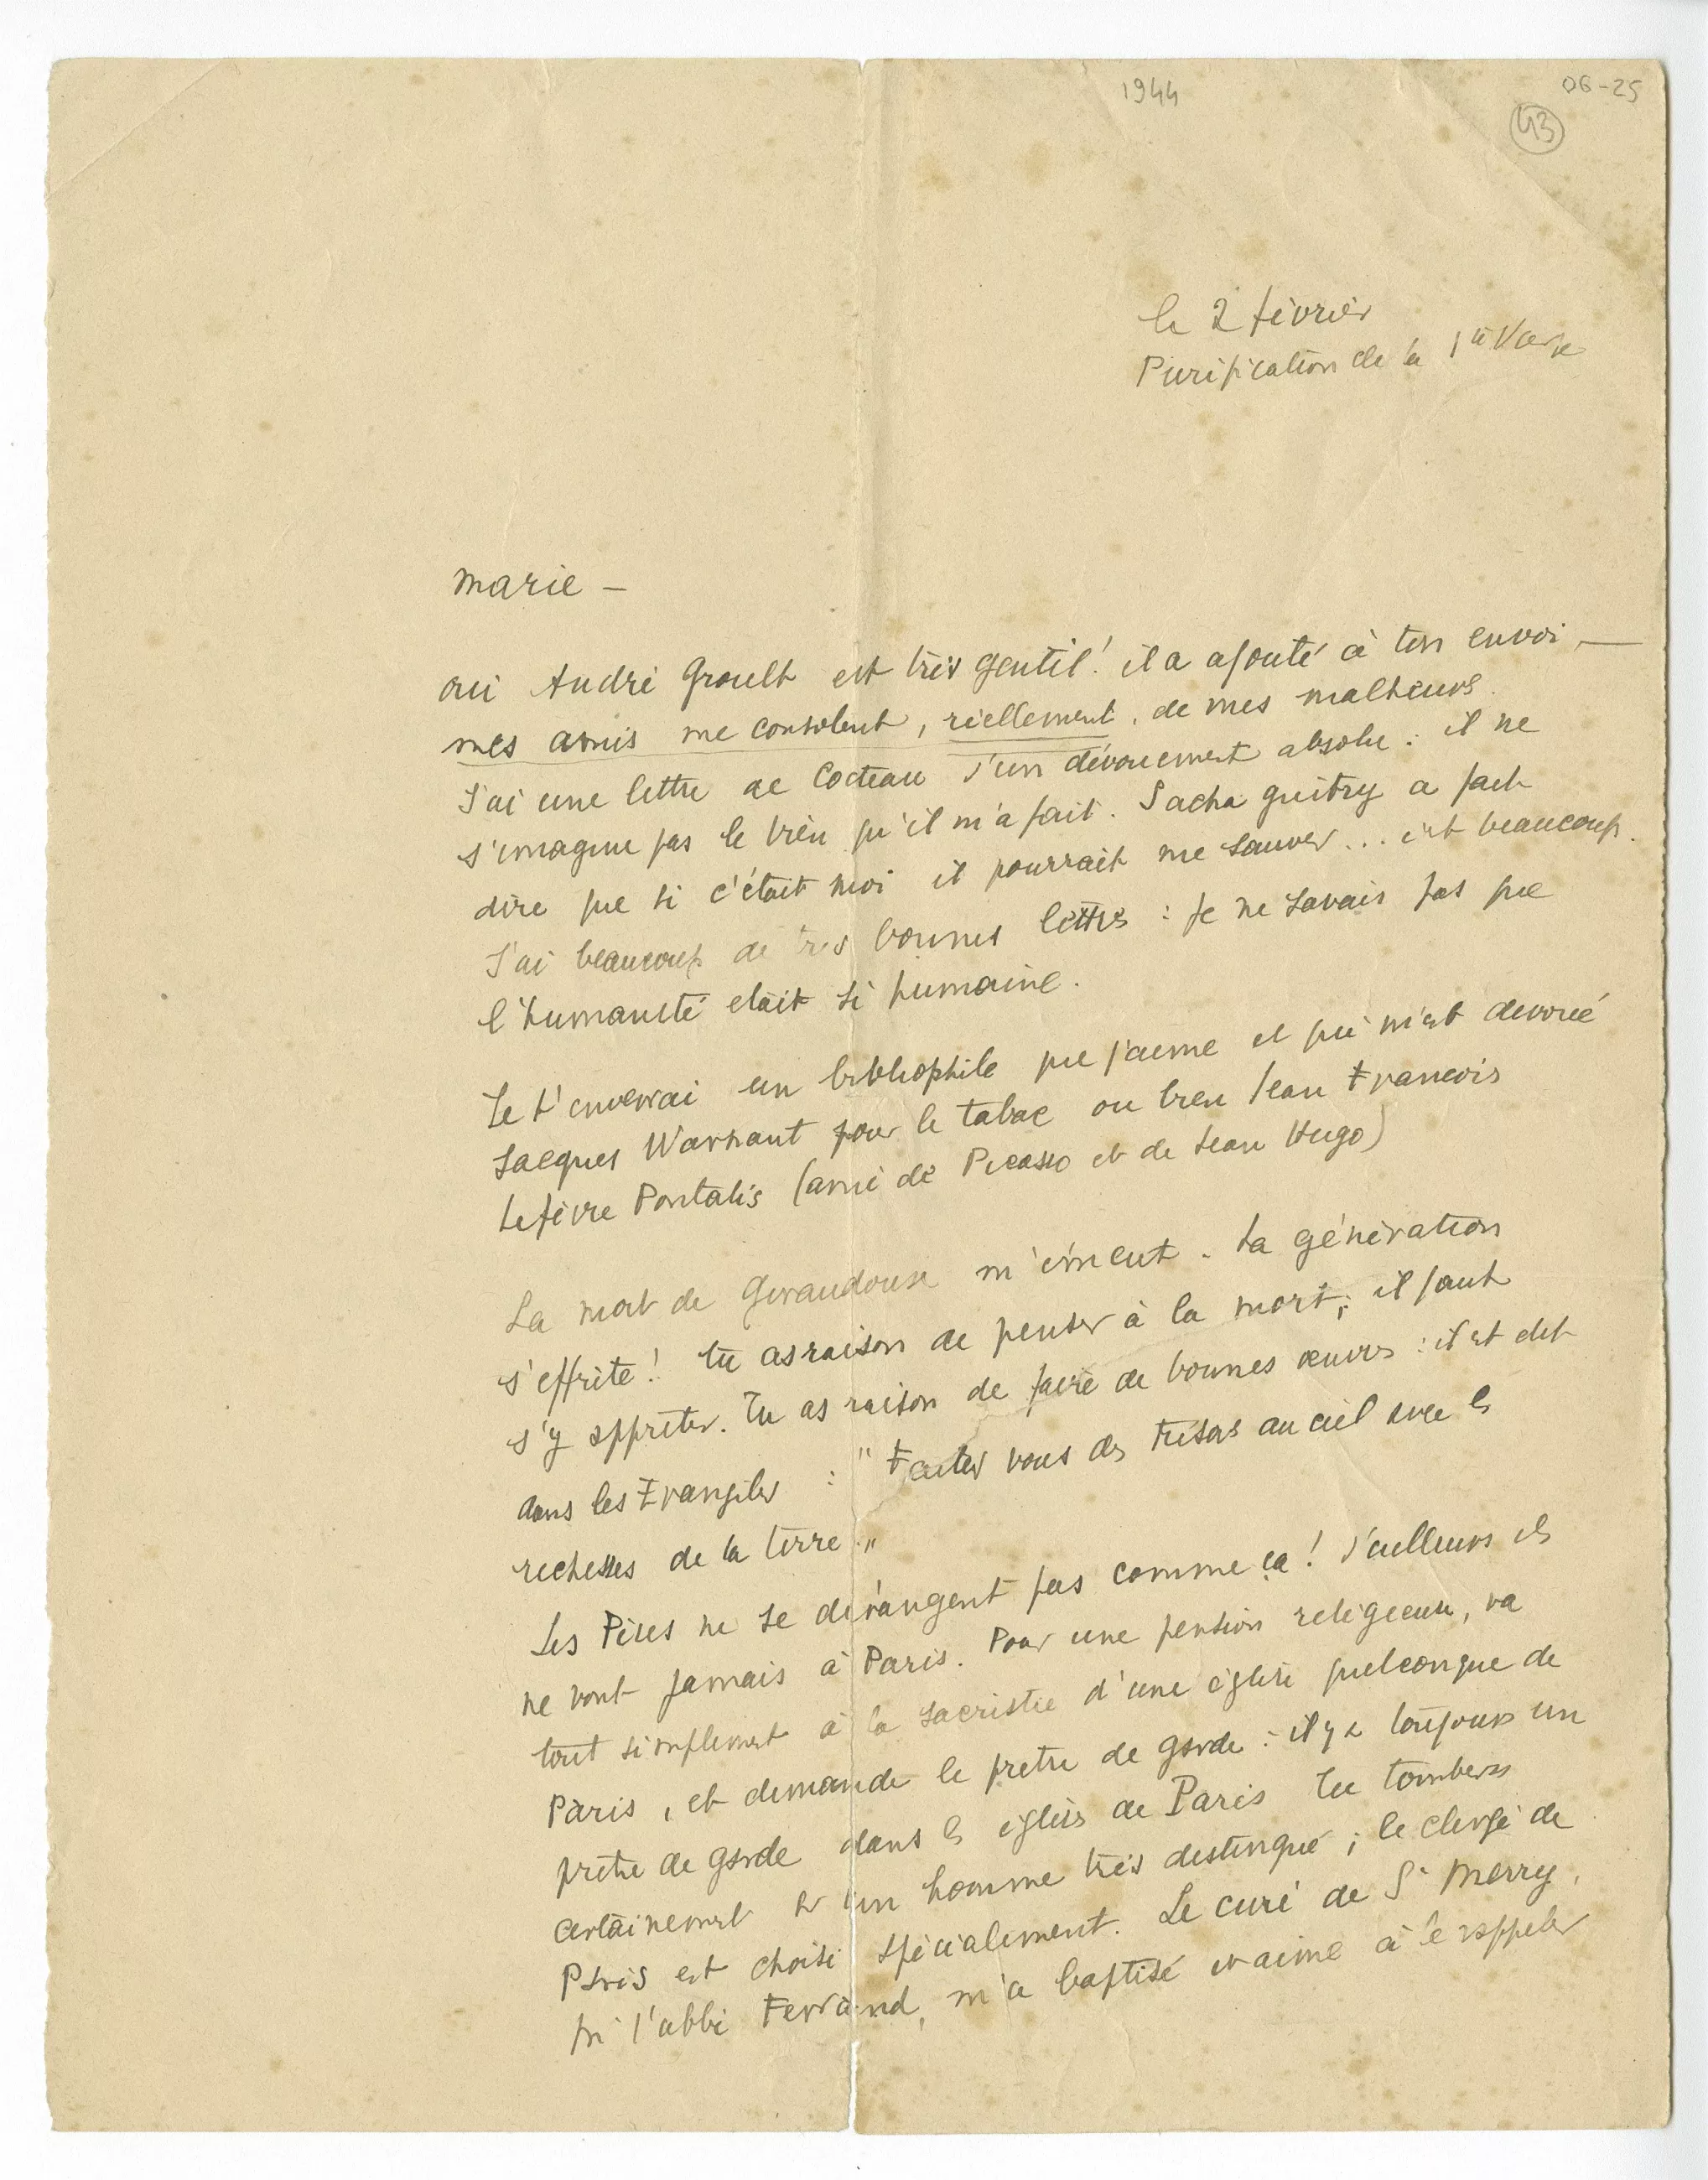 1944
06-25
43
le 2 février
Purification de la Ste Vierge
Marie —
oui André Groult est très gentil! il a ajouté à ton envoi —
mes amis me consolent, réellement, de mes malheurs.
J'ai une lettre de Cocteau d'un dévouement absolu : il ne
s'imagine pas le bien qu'il m'a fait. Sacha Guitry a fait
dire que si c'était moi il pourrait me sauver... c'est beaucoup.
J'ai beaucoup de très bonnes lettres : je ne savais pas que
l'humanité était si humaine.
Je t'enverrai un bibliophile que j'aime et qui m'est dévoué
Jacques Warnant pour le tabac ou bien Jean François
Lefèvre Pontalis (ami de Picasso et de Jean Hugo)
La mort de Giraudoux m'émeut. La génération
s'effrite! tu as raison de penser à la mort; il faut
s'y apprêter. Tu as raison de faire de bonnes œuvres : il est dit
dans les Evangiles : "Faites vous des trésors au ciel avec les
richesses de la terre."
Les Pères ne se dérangent pas comme ça! d'ailleurs ils
ne vont jamais à Paris. Pour une pension religieuse, va
tout simplement à la sacristie d'une église quelconque de
Paris, et demande le prêtre de garde : il y a toujours un
prêtre de garde dans les églises de Paris Tu tomberas
certainement sur un homme très distingué ; le clergé de
Paris est choisi spécialement. Le curé de St Merry,
qui l'abbé Ferrand, m'a baptisé et aime à le rappeler